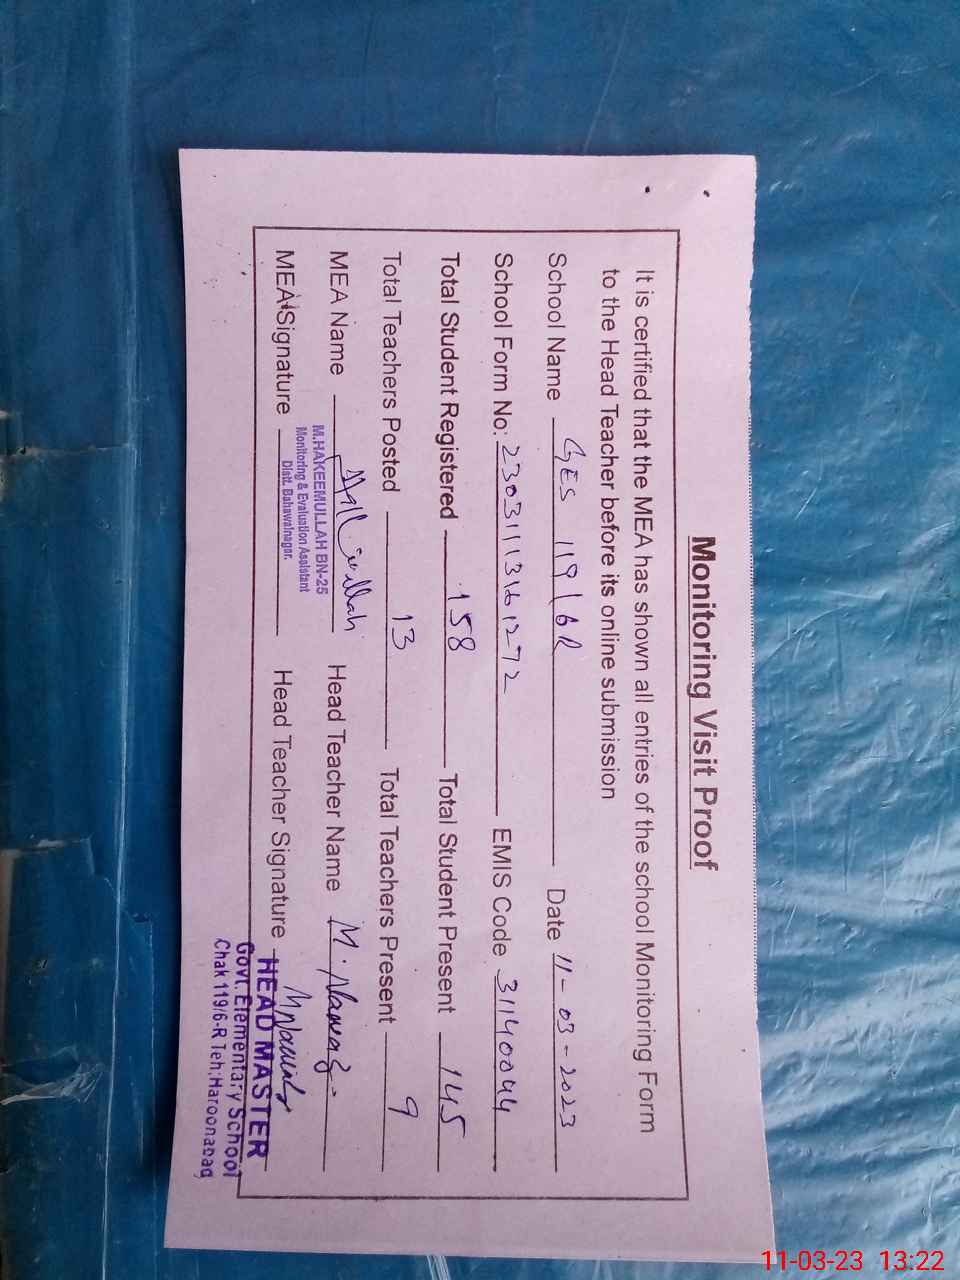 Monitoring Visit Proof
It is certified that the MEA has shown all entries of the school Monitoring Form
to the Head Teacher before its online submission
School Name GES 119/6R Date 11-03-2023
School Form No: 23031113161272 EMIS Code 31140044
Total Student Registered 158 Total Student Present 145
Total Teachers Posted 13 Total Teachers Present 9
MEA Name Head Teacher Name M. Nawaz
M.HAKEEMULLAH BN-25
Monitoring & Evaluation Assistant
Distt. Bahawalnagar.
MEA Signature Head Teacher Signature
HEAD MASTER
Govt. Elementary School
Chak 119/6-R Teh; Haroonabad
11-03-23 13:22